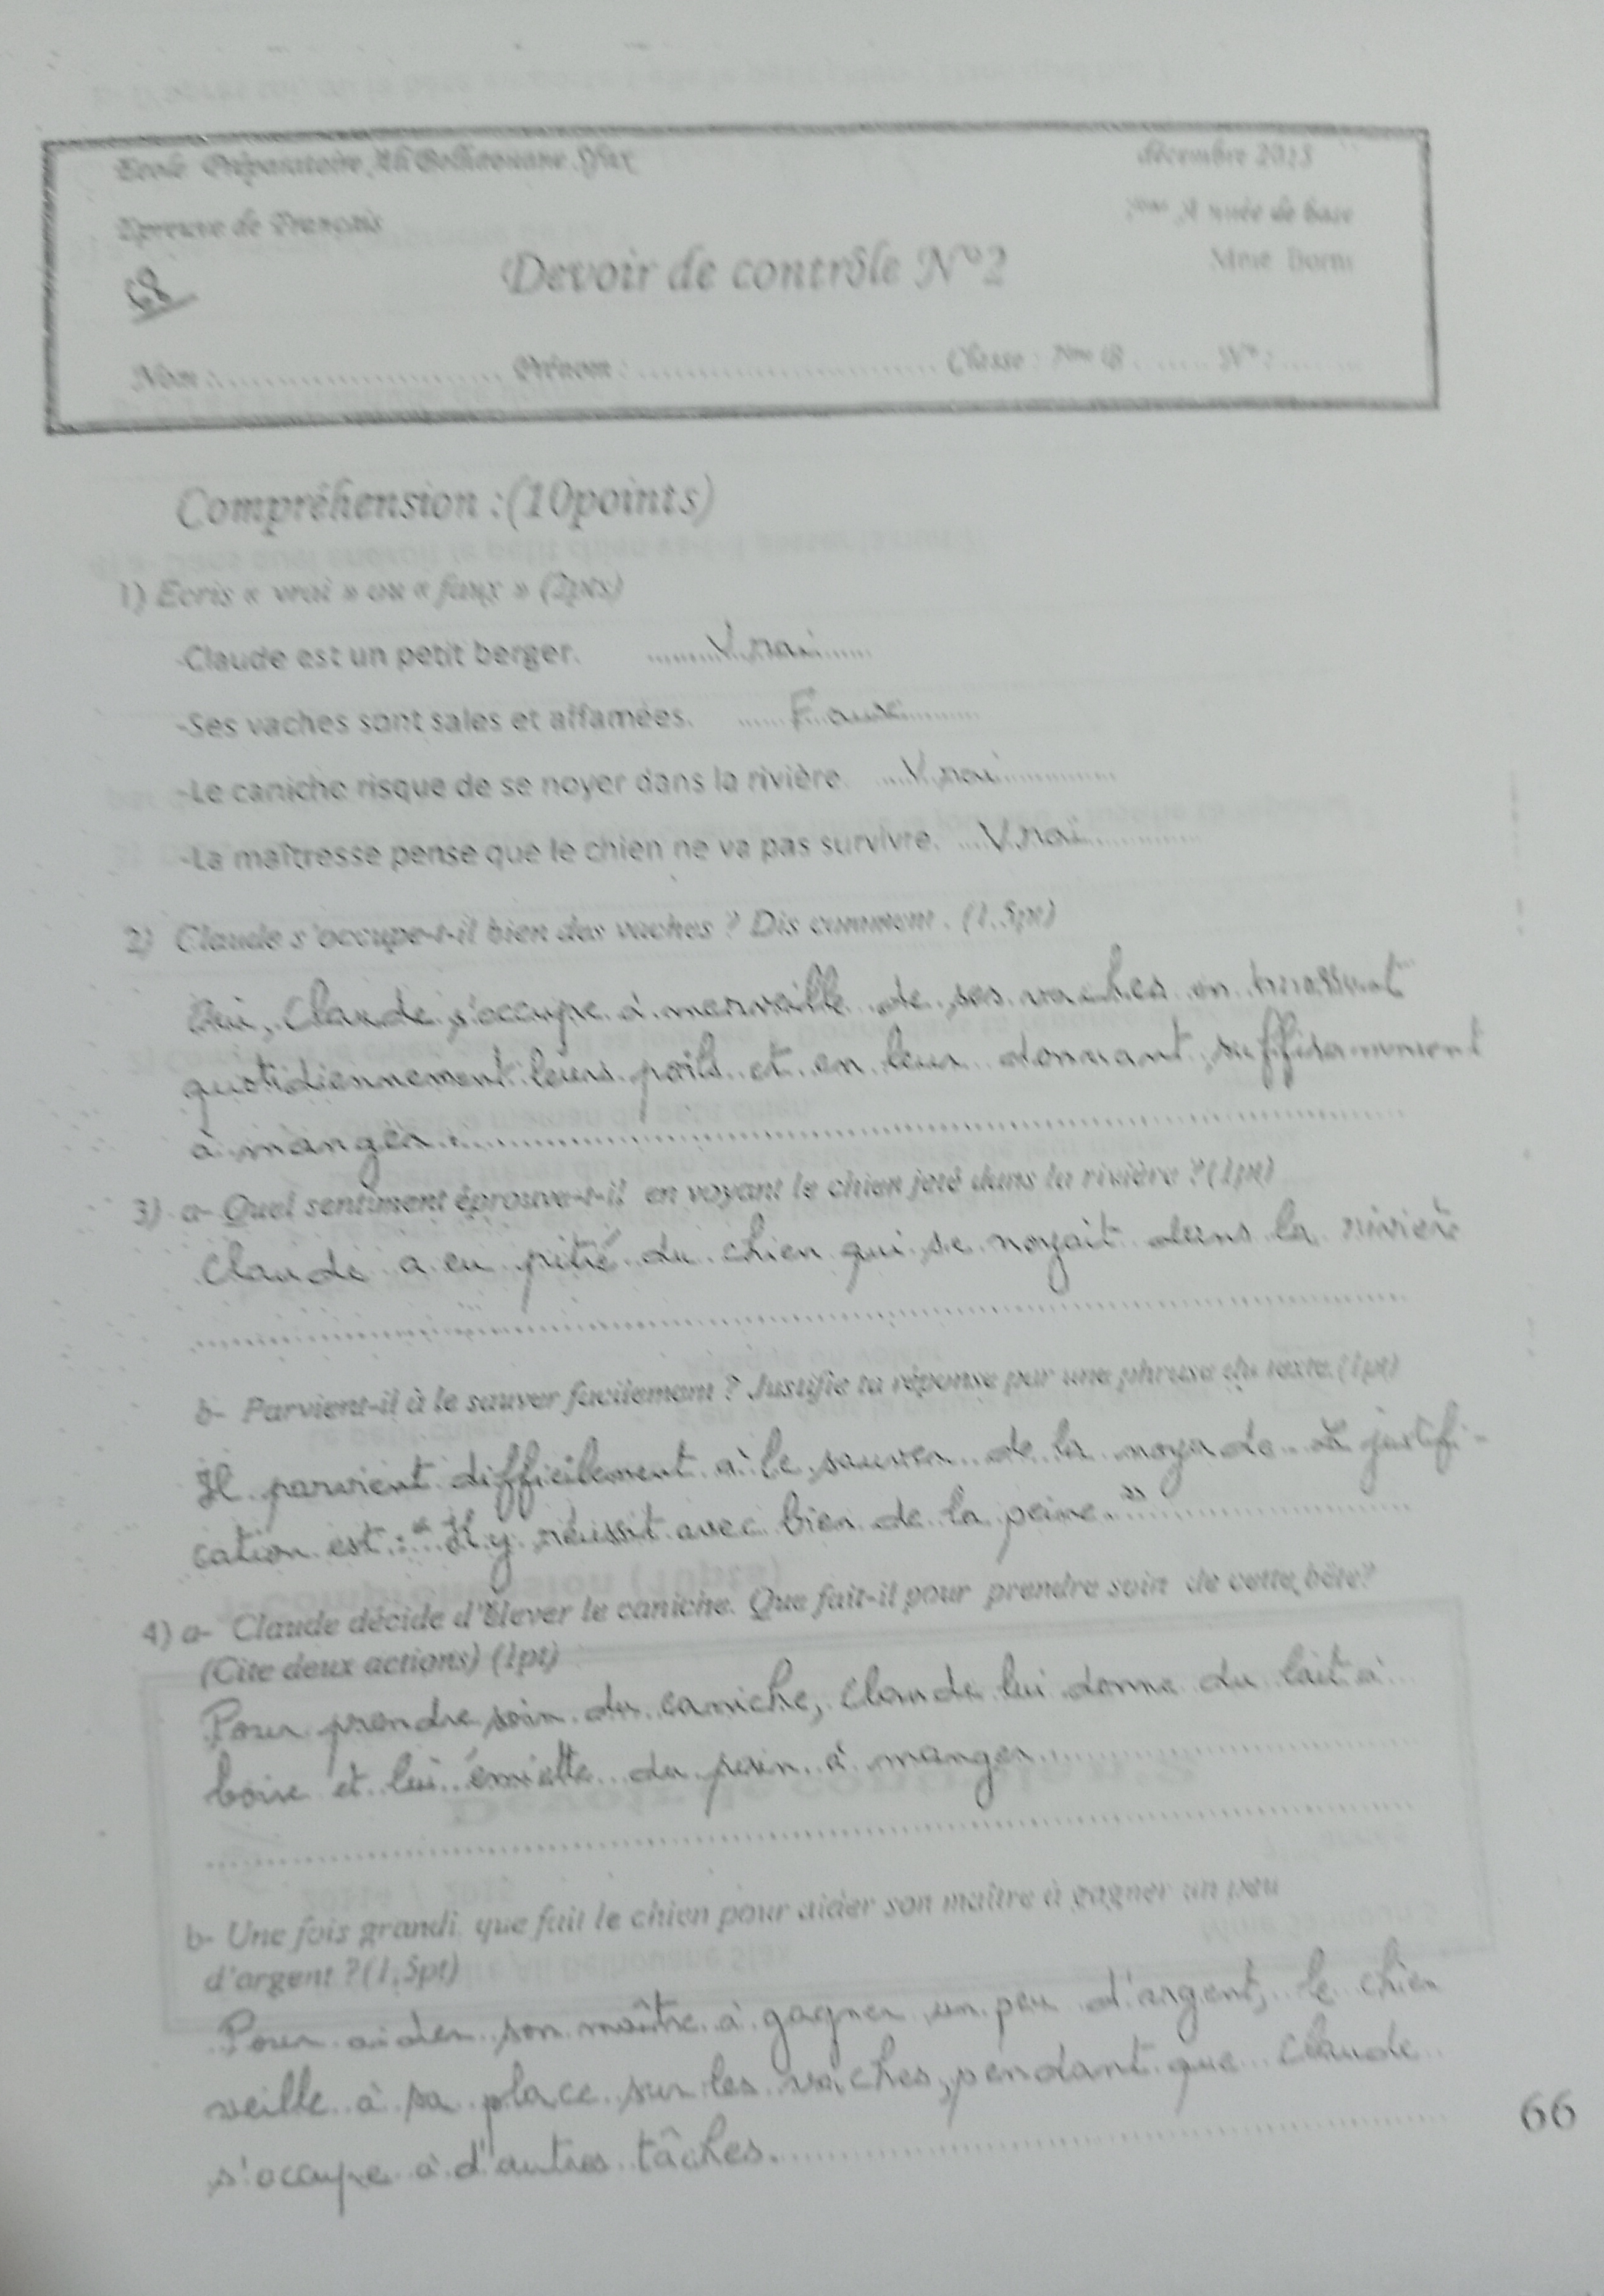 Ecole Préparatoire Ali Belhaouane Sfax
décembre 2013
Epreuve de Français
7ème Année de base
Devoir de contrôle N°2
Mme
68
Nom : Prénom : Classe : 7ème B N° :
Compréhension :(10points)
1) Ecris « vrai » ou « faux » (2pts)
-Claude est un petit berger. Vrai
-Ses vaches sont sales et affamées. Faux
-Le caniche risque de se noyer dans la rivière. Vrai
-La maîtresse pense que le chien ne va pas survivre. Vrai
2) Claude s'occupe-t-il bien des vaches ? Dis comment. (1,5pt)
Oui, Claude s'occupe à merveille de ses vaches en brossant
quotidiennement leurs poils et en leur donnant suffisamment
à manger.
3) a- Quel sentiment éprouve-t-il en voyant le chien jeté dans la rivière ?(1pt)
Claude a eu pitié du chien qui se noyait dans la rivière
b- Parvient-il à le sauver facilement ? Justifie ta réponse par une phrase du texte.(1pt)
Il parvient difficilement à le sauver de la noyade. La justifi-
cation est : "Il y réussit avec bien de la peine."
4) a- Claude décide d'élever le caniche. Que fait-il pour prendre soin de cette bête?
(Cite deux actions) (1pt)
Pour prendre soin du caniche, Claude lui donne du lait à
boire et lui émiette du pain à manger.
b- Une fois grandi, que fait le chien pour aider son maître à gagner un peu
d'argent ?(1,5pt)
Pour aider son maître à gagner un peu d'argent, le chien
veille à sa place sur les vaches, pendant que Claude
s'occupe à d'autres tâches.
66